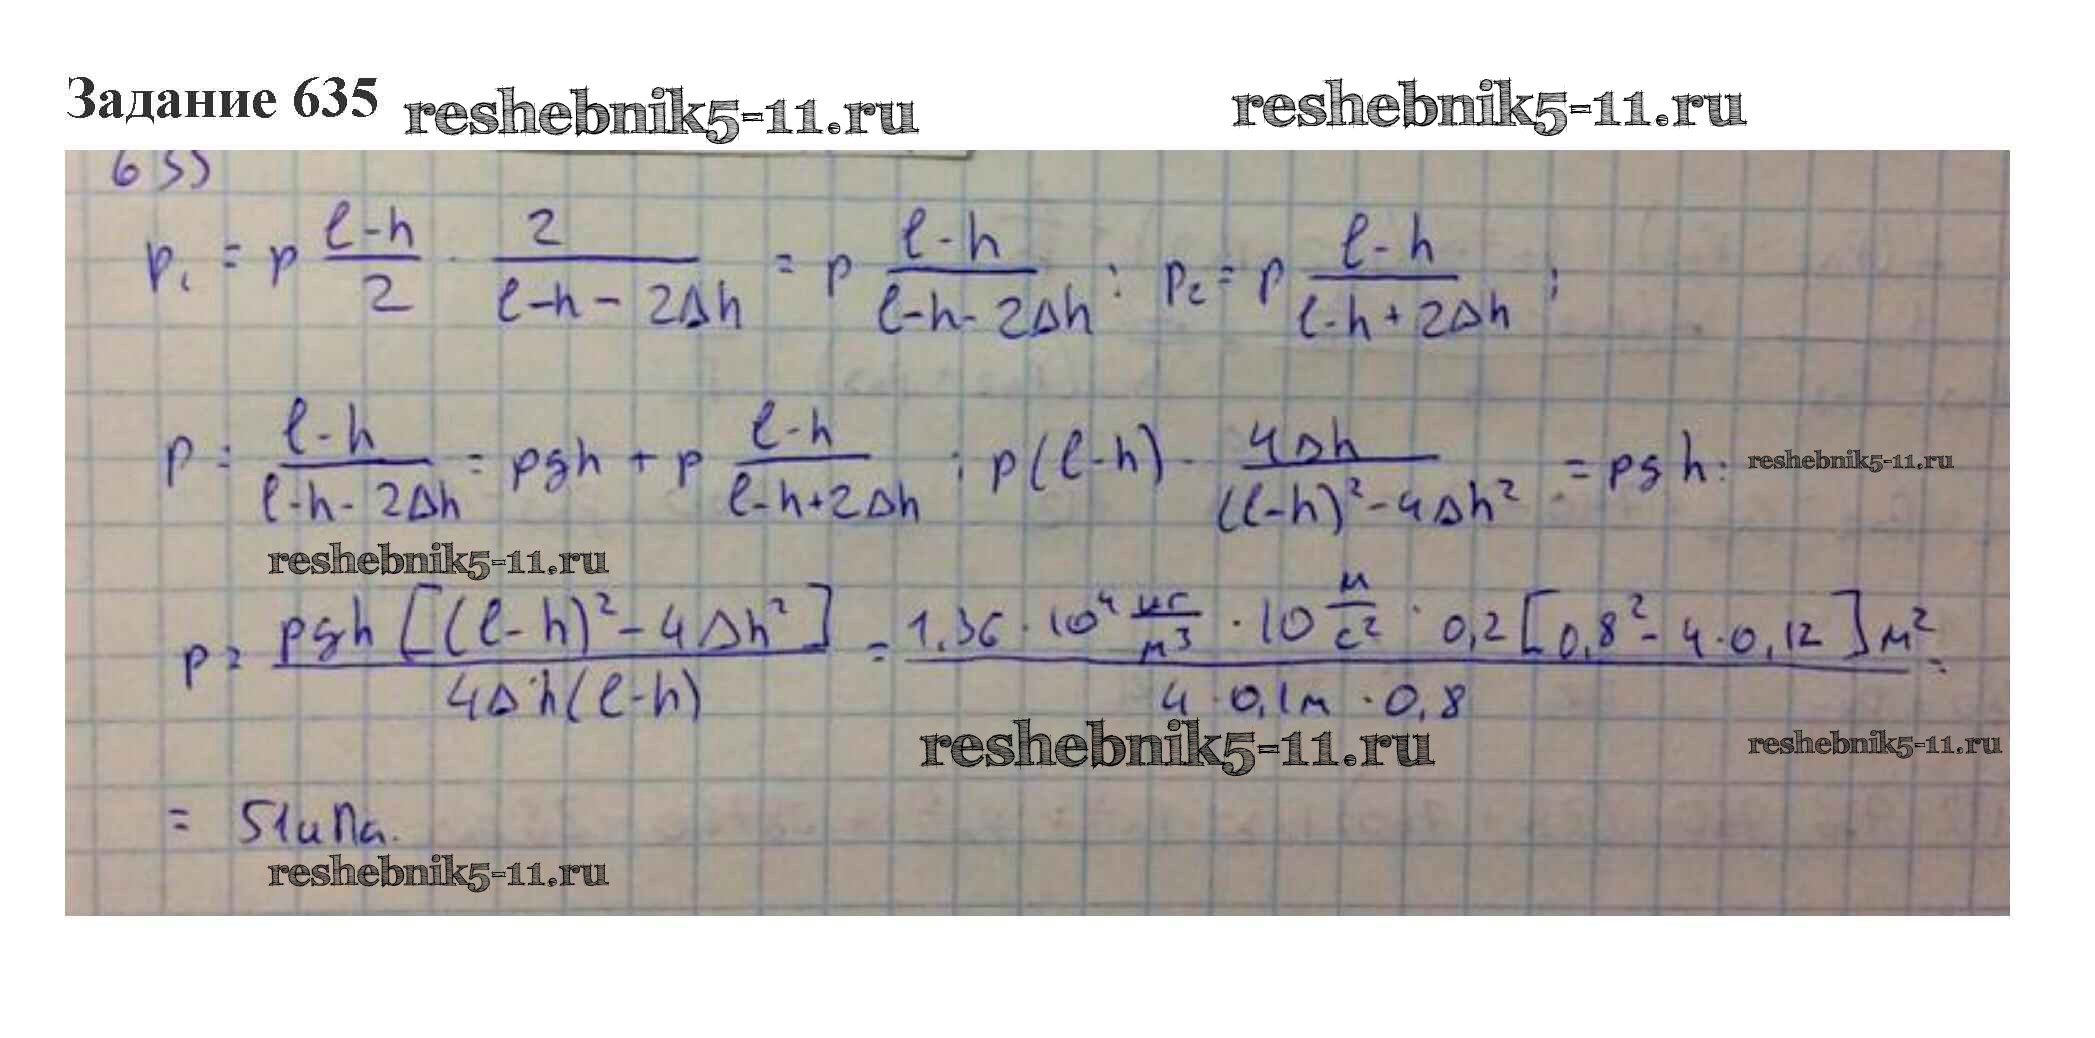 Задание 635 reshebnik5-11.ru reshebnik5-11.ru
635
p₁ = p (l-h)/2 · 2/(l-h-2Δh) = p (l-h)/(l-h-2Δh) ; p₂ = p (l-h)/(l-h+2Δh) ;
p = (l-h)/(l-h-2Δh) = ρgh + p (l-h)/(l-h+2Δh) ; p(l-h) · 4Δh/((l-h)²-4Δh²) = ρgh ; reshebnik5-11.ru
reshebnik5-11.ru
p = ρgh[(l-h)²-4Δh²]/(4Δh(l-h)) = 1.36·10⁴ кг/м³ · 10 м/с² · 0,2[0,8²-4·0,12]м²/(4·0,1м·0,8) =
reshebnik5-11.ru reshebnik5-11.ru
= 51кПа.
reshebnik5-11.ru